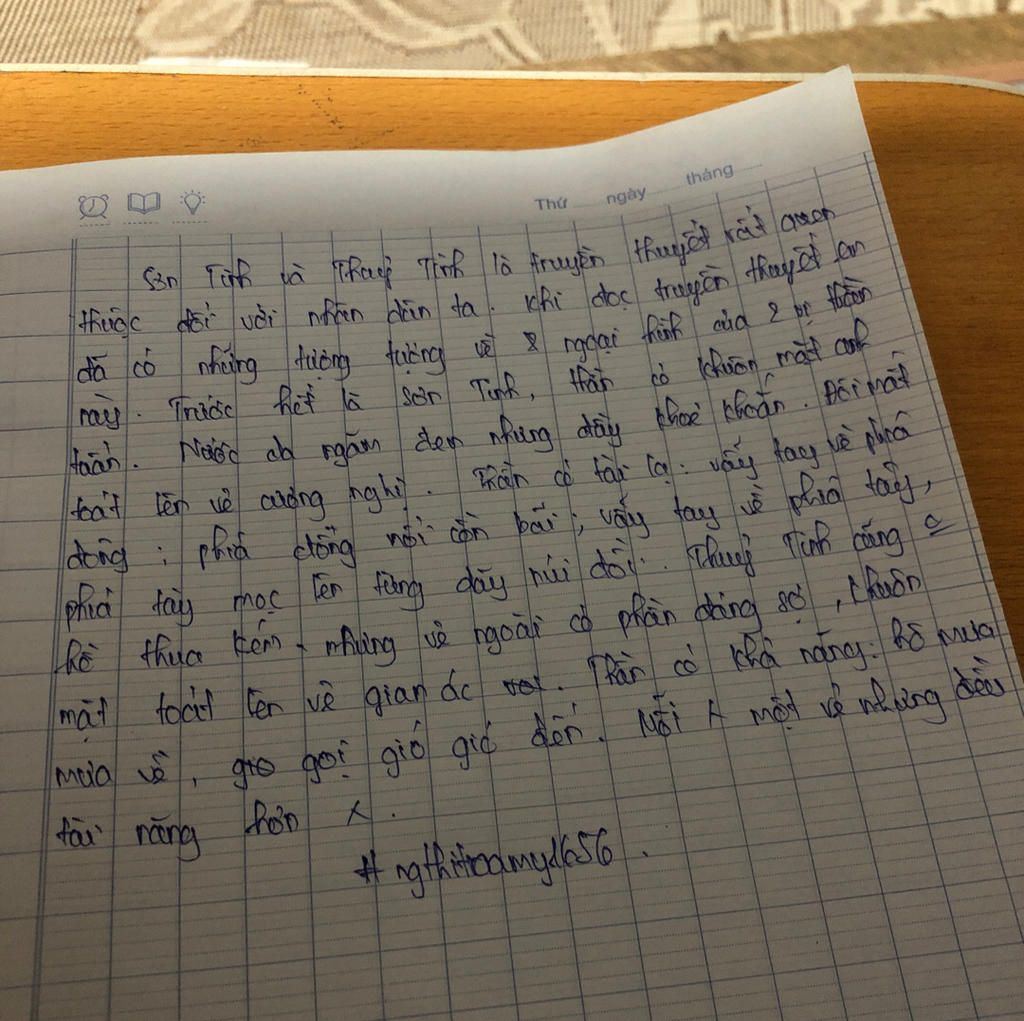 Thứ ngày tháng
Sơn Tinh và Thuỷ Tinh là truyền thuyết rất quen
thuộc đối với nhân dân ta. Khi đọc truyền thuyết em
đã có những tưởng tượng về 2 ngoại hình của 2 vị thần
này. Trước hết là Sơn Tinh, thần có khuôn mặt anh
tuấn. Nước da ngăm đen nhưng đầy khoẻ khoắn. Đôi mắt
toát lên vẻ cương nghị. Thần có tài lạ: vẫy tay về phía
đông; phía đông nổi cồn bãi; vẫy tay về phía tây,
phía tây mọc lên từng dãy núi đồi. Thuỷ Tinh cũng
hề thua kém. nhưng vẻ ngoài có phần đáng sợ, khuôn
mặt toát lên vẻ gian ác. Thần có khả năng: hô mưa
mưa về, gió gọi gió gió đến. Mỗi một vẻ nhưng đều
tài năng hơn
# ngthitramy1656.